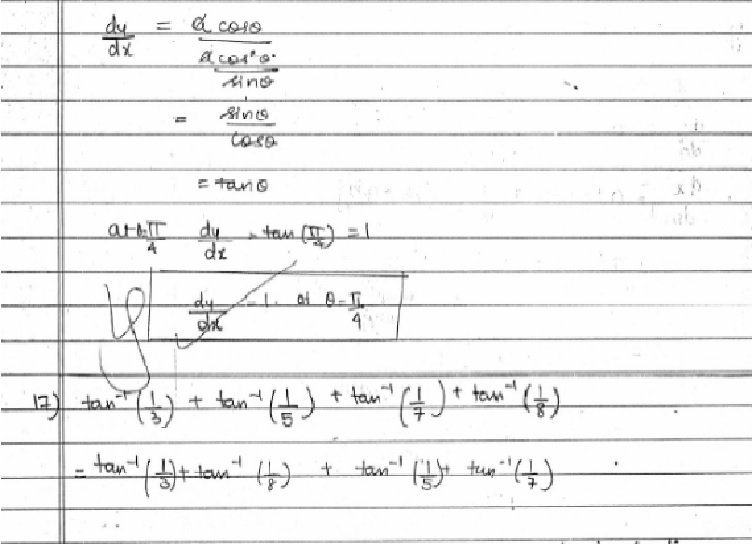 dy/dx = a cosθ / (a cos²θ / sinθ)
= sinθ / cosθ
= tanθ
at θ=π/4 dy/dx = tan(π/4) = 1
dy/dx = 1 at θ=π/4
17) tan⁻¹(1/3) + tan⁻¹(1/5) + tan⁻¹(1/7) + tan⁻¹(1/8)
= tan⁻¹(1/3) + tan⁻¹(1/8) + tan⁻¹(1/5) + tan⁻¹(1/7)